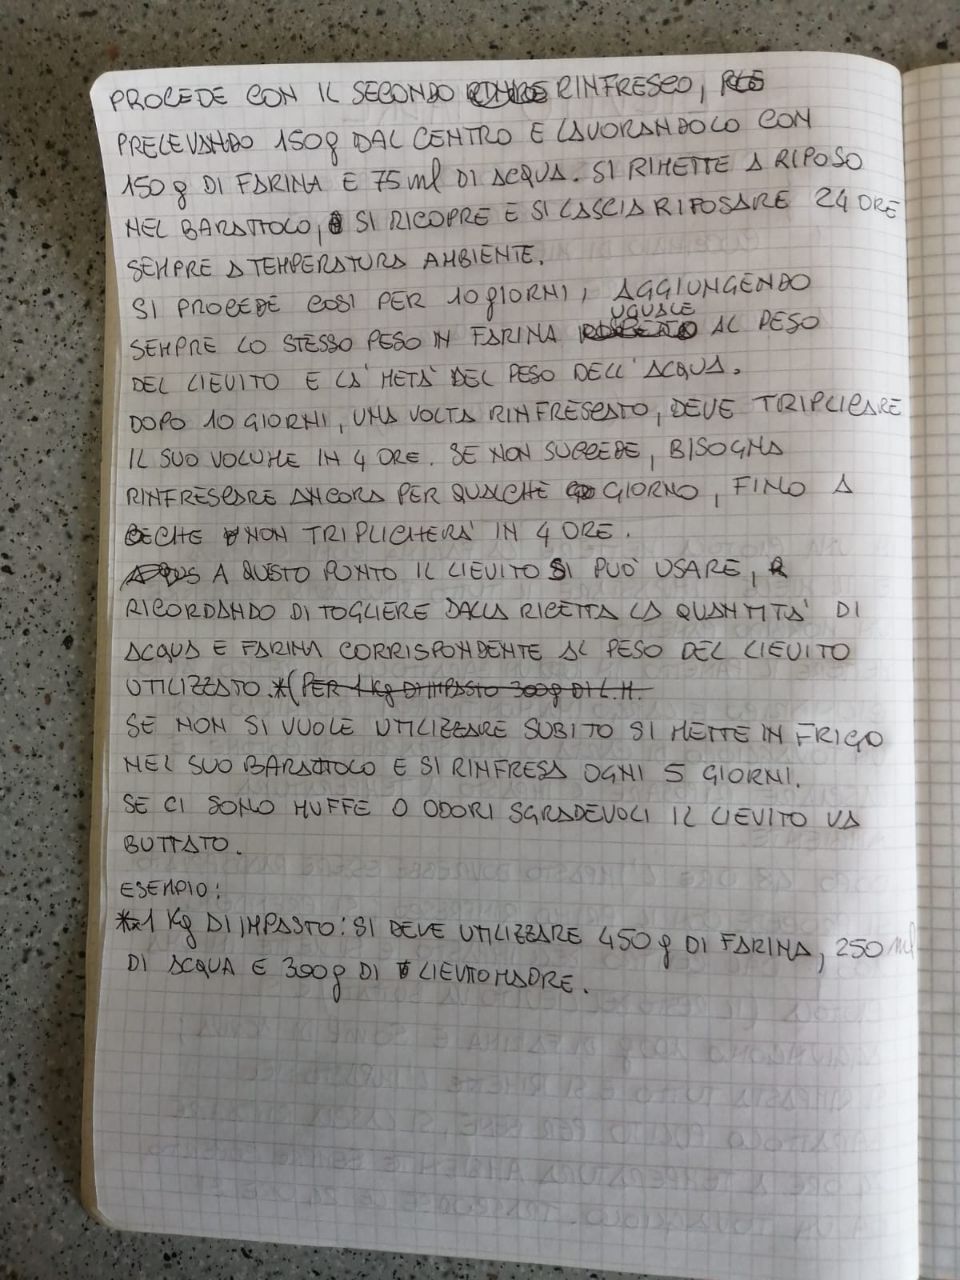 PROCEDE CON IL SECONDO RINFRESCO,
PRELEVANDO 150g DAL CENTRO E LAVORANDOLO CON
150 g DI FARINA E 75 ml DI ACQUA. SI RIMETTE A RIPOSO
NEL BARATTOLO, SI RICOPRE E SI LASCIA RIPOSARE 24 ORE
SEMPRE A TEMPERATURA AMBIENTE.
SI PROCEDE COSI PER 10 gIORNI, AGGIUNGENDO
SEMPRE LO STESSO PESO IN FARINA UGUALE AL PESO
DEL LIEVITO E LA' METÀ DEL PESO DELL'ACQUA.
DOPO 10 GIORNI, UNA VOLTA RINFRESCATO, DEVE TRIPLICARE
IL SUO VOLUME IN 4 ORE. SE NON SUCCEDE, BISOGNA
RINFRESCARE ANCORA PER QUALCHE GIORNO, FINO A
CHE NON TRIPLICHERÀ IN 4 ORE.
A QUESTO PUNTO IL LIEVITO SI PUÒ USARE,
RICORDANDO DI TOGLIERE DALLA RICETTA LA QUANTITÀ DI
ACQUA E FARINA CORRISPONDENTE AL PESO DEL LIEVITO
UTILIZZATO.*(PER 1 Kg DI IMPASTO 300g DI L.M.
SE NON SI VUOLE UTILIZZARE SUBITO SI METTE IN FRIGO
NEL SUO BARATTOLO E SI RINFRESA OGNI 5 GIORNI.
SE CI SONO MUFFE O ODORI SGRADEVOLI IL LIEVITO VA
BUTTATO.
ESEMPIO:
*1 Kg DI IMPASTO: SI DEVE UTILIZZARE 450 g DI FARINA, 250 ml
DI ACQUA E 300g DI LIEVITO MADRE.